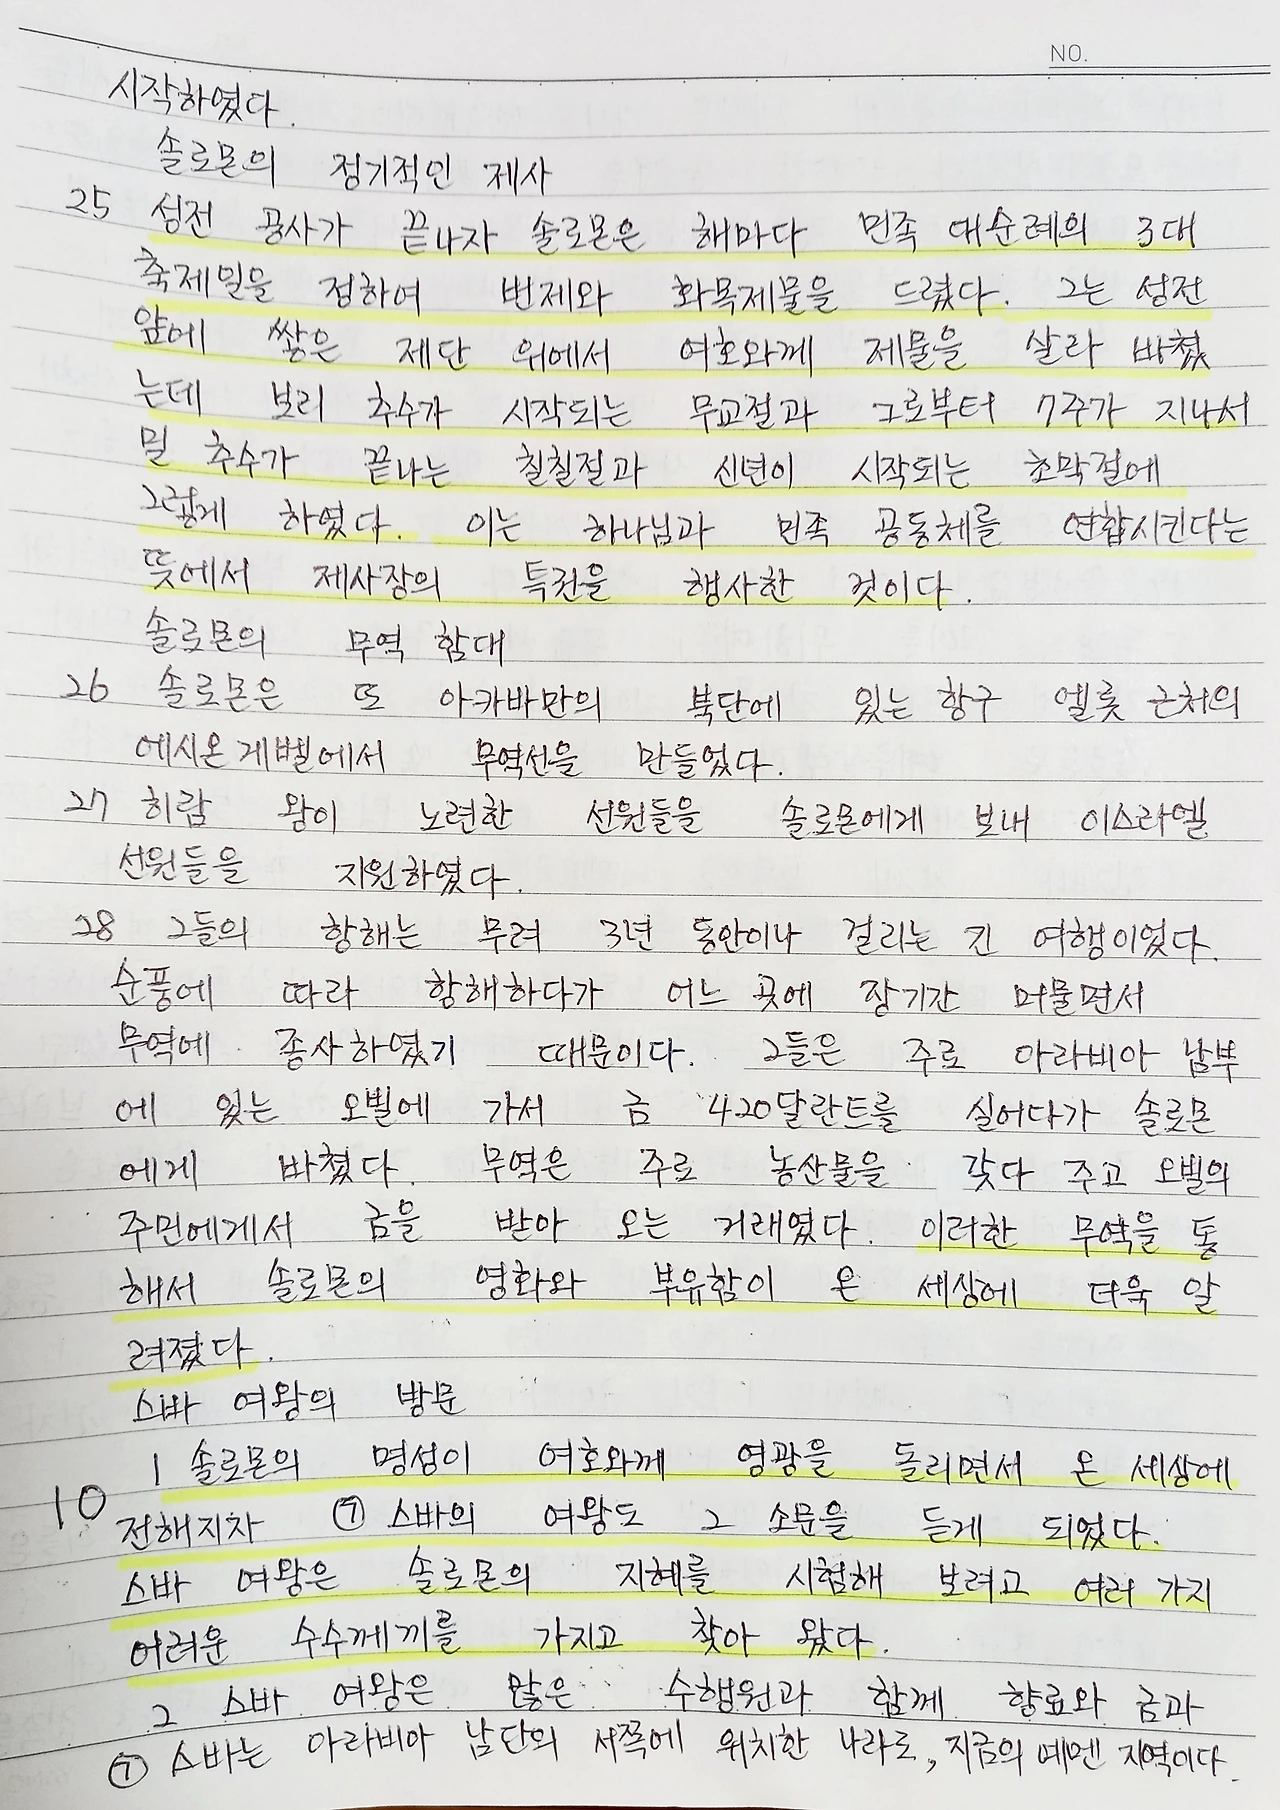 NO.
시작하였다.
솔로몬의 정기적인 제사
25 성전 공사가 끝나자 솔로몬은 해마다 민족 대순례의 3대
축제일을 정하여 번제와 화목제물을 드렸다. 그는 성전
앞에 쌓은 제단 위에서 여호와께 제물을 살라 바쳤
는데 보리 추수가 시작되는 무교절과 그로부터 7주가 지나서
밀 추수가 끝나는 칠칠절과 신년이 시작되는 초막절에
그렇게 하였다. 이는 하나님과 민족 공동체를 연합시킨다는
뜻에서 제사장의 특권을 행사한 것이다.
솔로몬의 무역 함대
26 솔로몬은 또 아카바만의 북단에 있는 항구 엘롯 근처의
에시온게벨에서 무역선을 만들었다.
27 히람 왕이 노련한 선원들을 솔로몬에게 보내 이스라엘
선원들을 지원하였다.
28 그들의 항해는 무려 3년 동안이나 걸리는 긴 여행이었다.
순풍에 따라 항해하다가 어느 곳에 장기간 머물면서
무역에 종사하였기 때문이다. 그들은 주로 아라비아 남부
에 있는 오빌에 가서 금 420달란트를 실어다가 솔로몬
에게 바쳤다. 무역은 주로 농산물을 갖다 주고 오빌의
주민에게서 금을 받아 오는 거래였다. 이러한 무역을 통
해서 솔로몬의 영화와 부유함이 온 세상에 더욱 알
려졌다.
스바 여왕의 방문
10 1 솔로몬의 명성이 여호와께 영광을 돌리면서 온 세상에
전해지자 ⑦ 스바의 여왕도 그 소문을 듣게 되었다.
스바 여왕은 솔로몬의 지혜를 시험해 보려고 여러 가지
어려운 수수께끼를 가지고 찾아 왔다.
2 스바 여왕은 많은 수행원과 함께 향료와 금과
⑦ 스바는 아라비아 남단의 서쪽에 위치한 나라로, 지금의 예멘 지역이다.